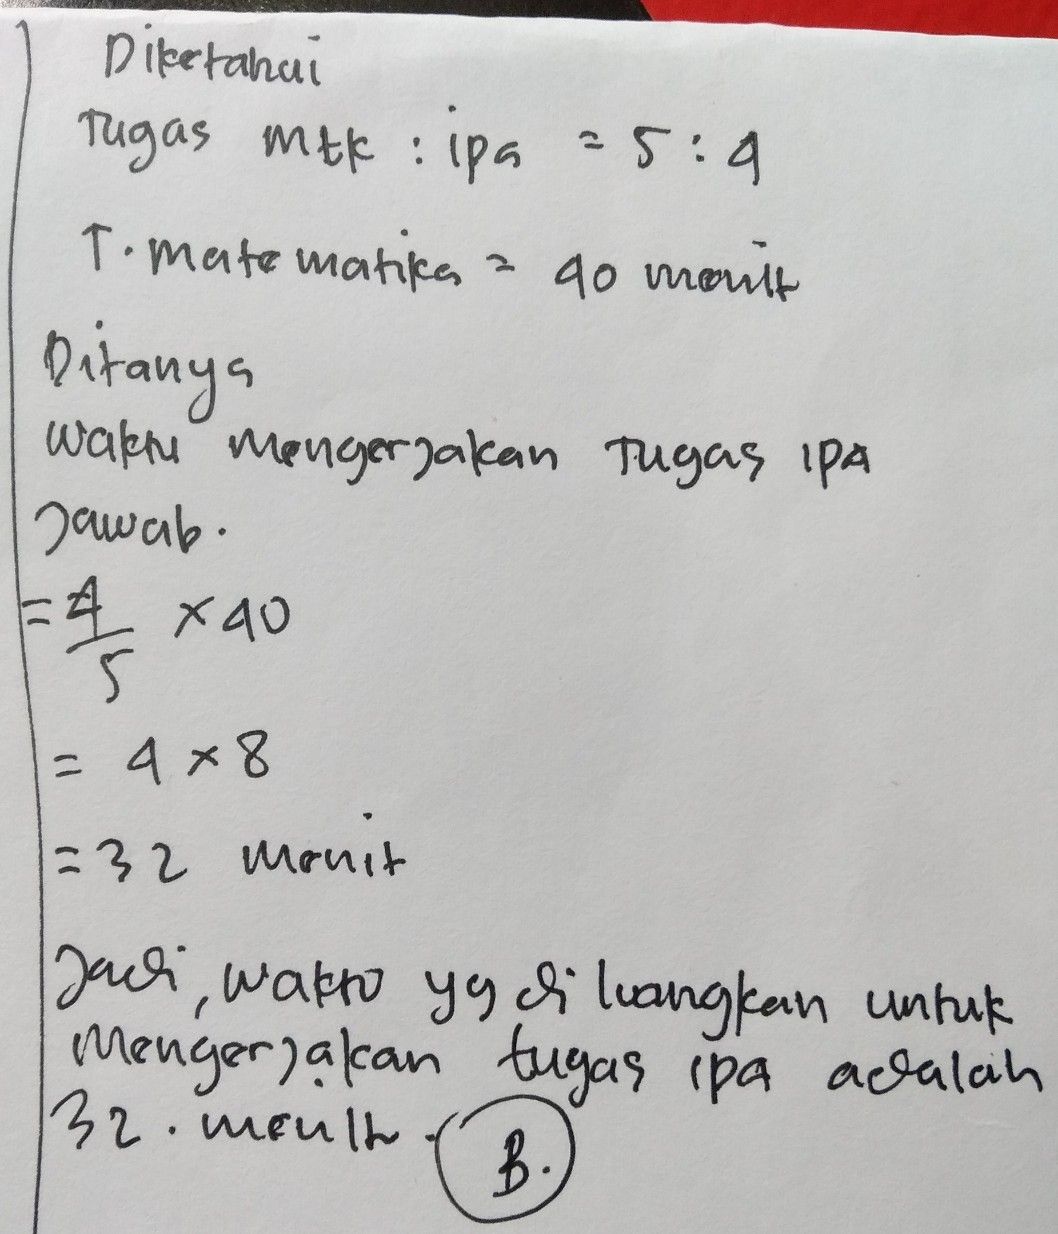 Diketahui
Tugas mtk : ipa = 5 : 4
T. matematika = 40 menit
Ditanya
waktu mengerjakan Tugas IPA
Jawab.
= 4/5 × 40
= 4 × 8
= 32 menit
Jadi, waktu yg di luangkan untuk
mengerjakan tugas ipa adalah
32. menit. B.